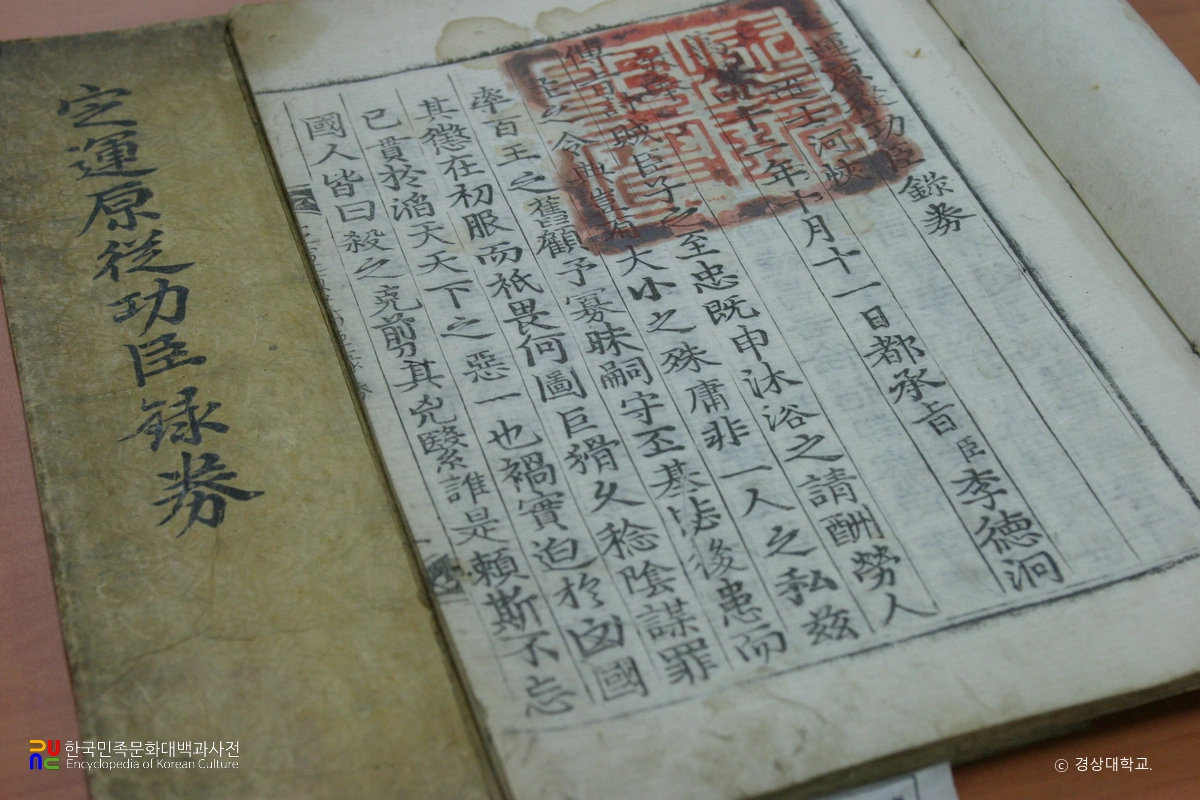 定運原從功臣錄券
運原從功臣錄券
士河
年十月十一日都承旨臣李德泂
傳旨討賊臣子之至忠既申沐浴之請酬勞人
之令典豈有大小之殊庸非一人之私茲
率百王之舊顧予寡昧嗣守丕基毖後患而
其懲在初服而祇畏何圖巨猾久稔陰謀罪
已貫於滔天天下之惡一也禍實迫於凶國
國人皆曰殺之克剪其兇繄誰是賴斯不忘
한국민족문화대백과사전
Encyclopedia of Korean Culture
© 경상대학교.